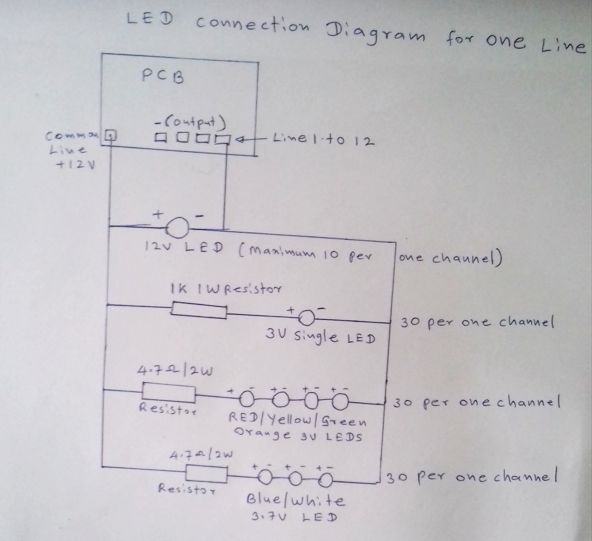 LED connection Diagram for one Line
PCB
-(output)
Common
Line
+12V
Line 1 to 12
+ -
12V LED (Maximum 10 per one channel)
1K 1W Resistor
+ -
3V Single LED
30 per one channel
4.7Ω/2W
Resistor
+ - + - + - + -
RED/Yellow/Green
Orange 3V LEDS
30 per one channel
4.7Ω/2W
Resistor
+ - + - + -
Blue/White
3.7V LED
30 per one channel